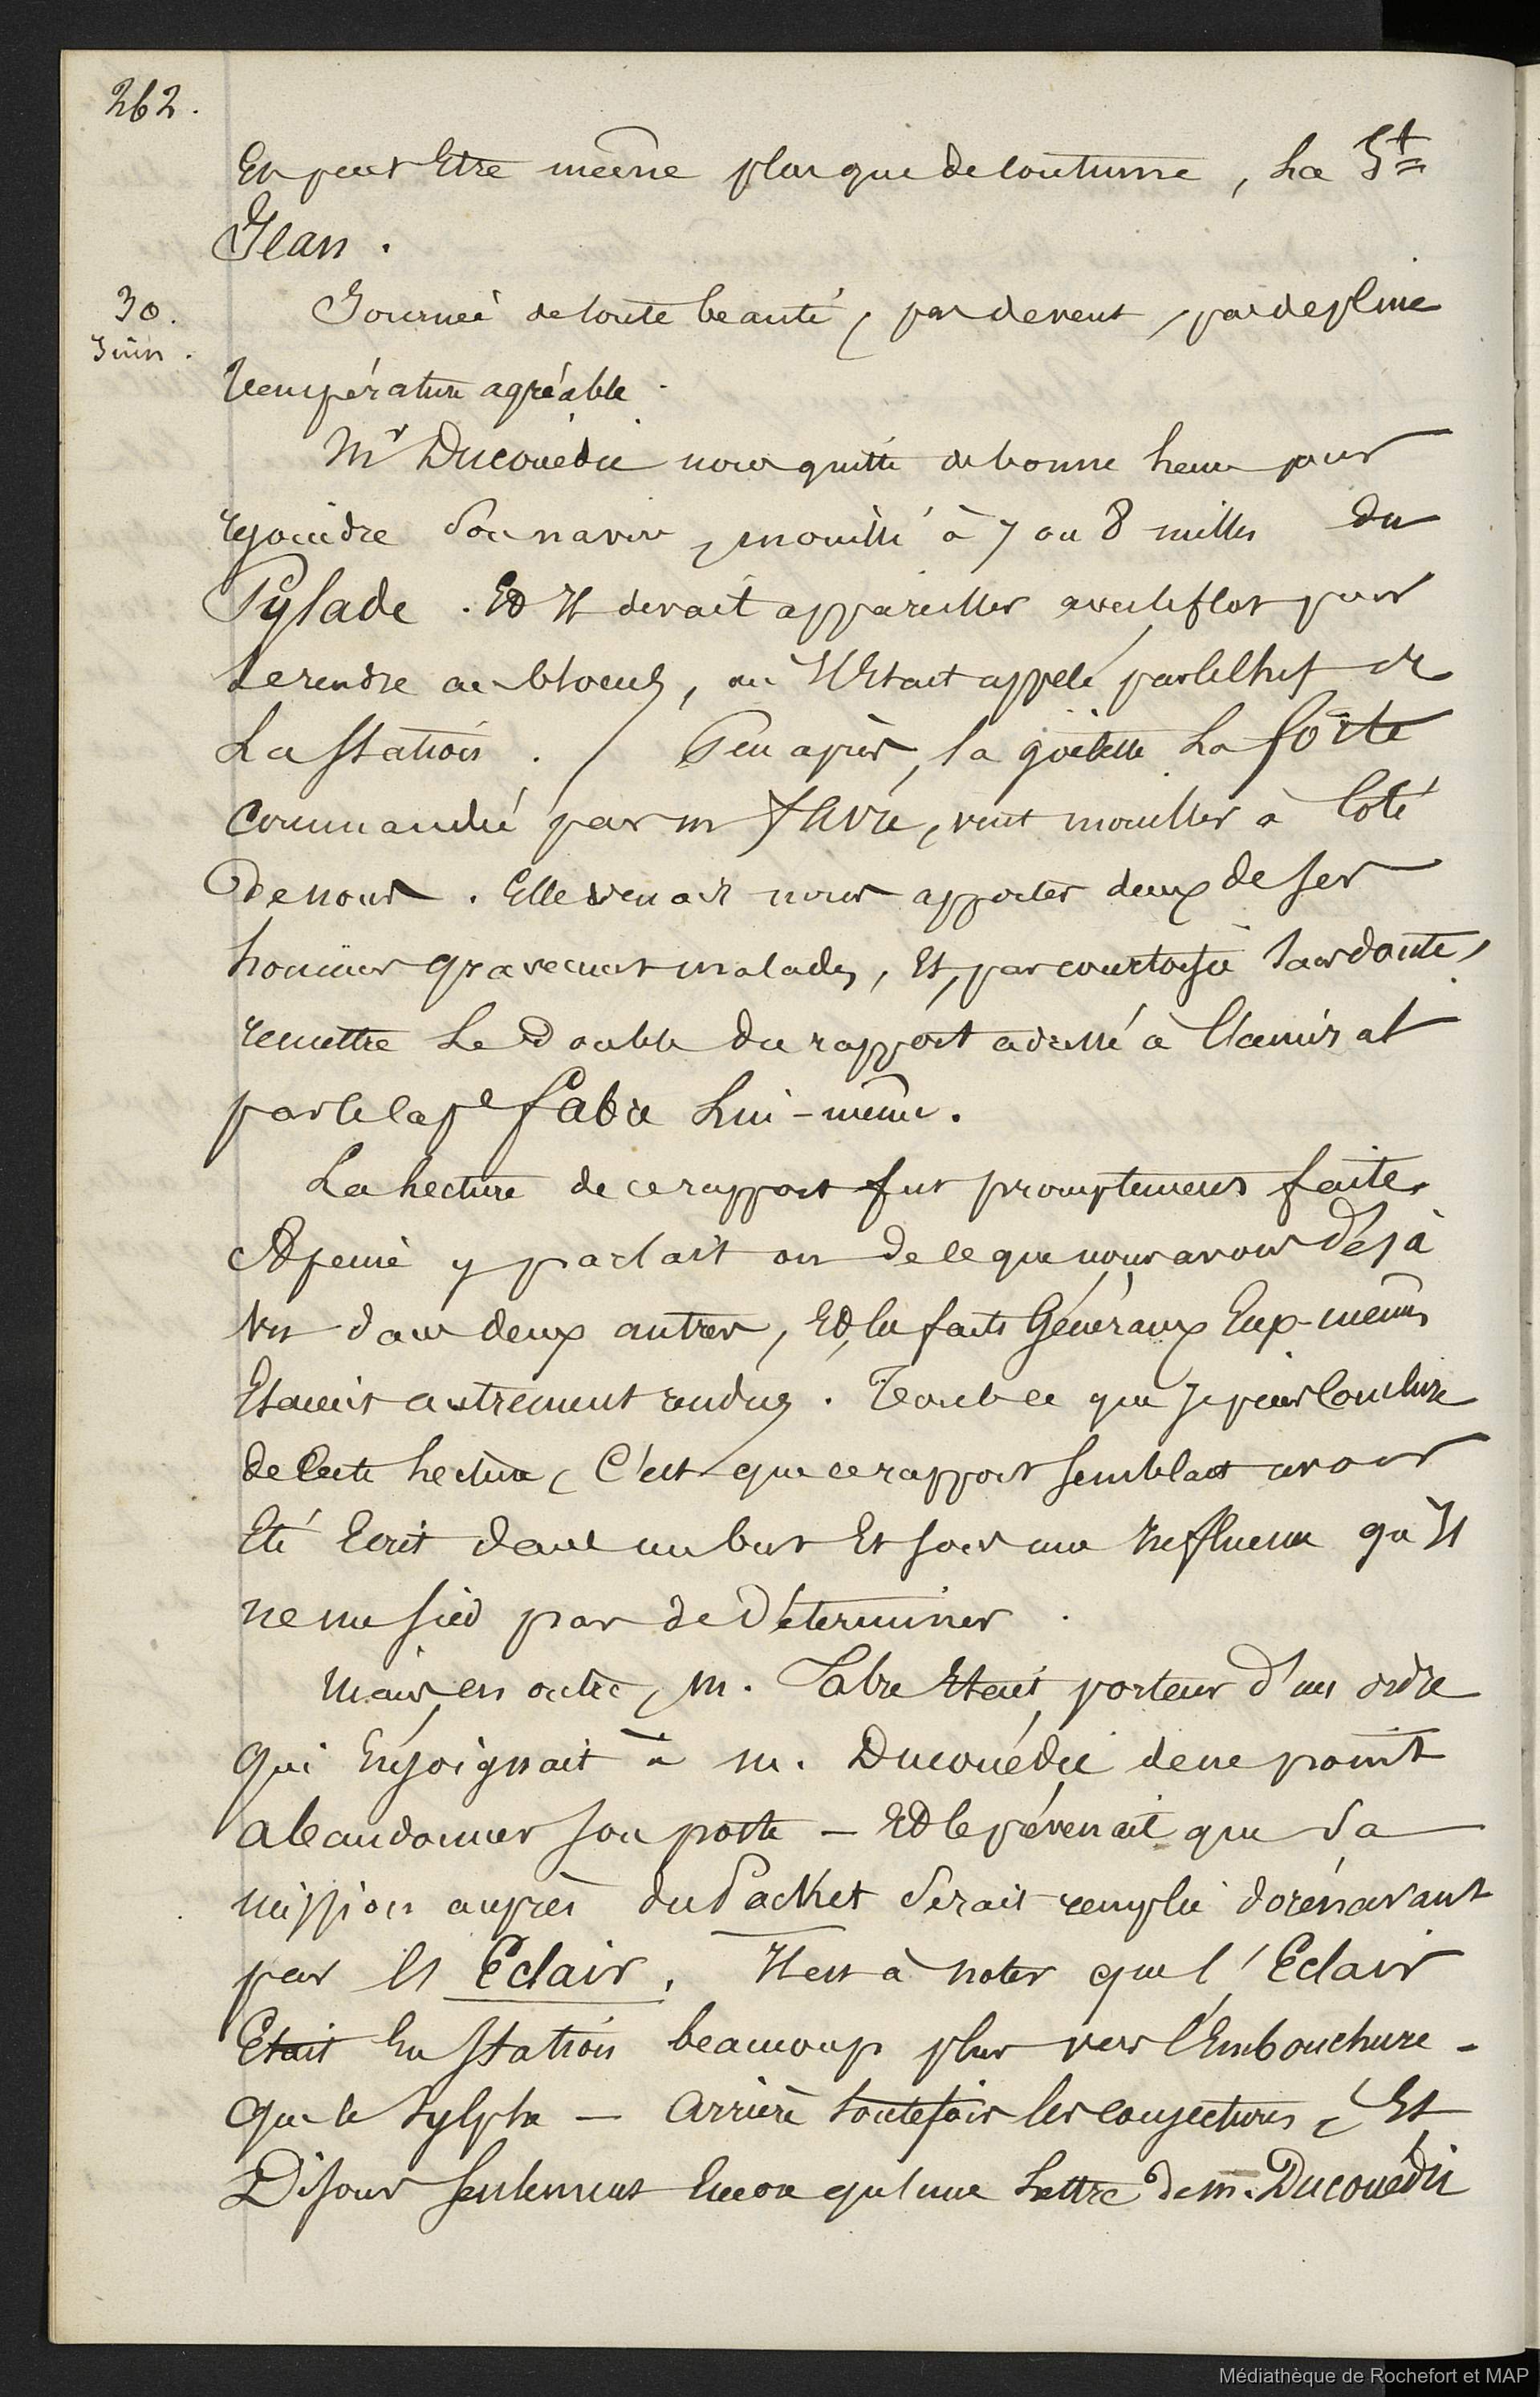 262.
Et peut Etre même plus que de coutume, La St
Jean.
30.
Juin.
Journée de toute beauté, pas de vent, pas de pluie
température agréable.
Mr Ducouëdic nous quitte de bonne heure pour
rejoindre Son navire, mouillé à 7 ou 8 milles du
Pylade. Et Il devait appareiller avec le flot pour
se rendre au blocus, où Il Etait appelé par le Chef de
La Station. / Peu après, la goëlette La forte
Commandée par m fabre, vint mouiller à Coté
de nous. Elle venait nous apporter deux de ses
hommes gravement malades, Et, par courtoisie Sans doute,
remettre Le Double du rapport adressé à l'amiral
par le Cape fabre Lui-même.
La Lecture de ce rapport fut promptement faite.
A peine y parlait on de ce que nous avons Déjà
vu dans deux autres, Et les faits Généraux Eux-mêmes
Etaient autrement rendus. Tout ce que Je puis Conclure
de Cette Lecture, C'est que ce rapport Semblait avoir
Eté Ecrit dans un but Et sous une Influence qu'Il
ne me Sied pas de Déterminer.
Mais, en outre, M. Fabre Etait porteur d'un ordre
qui Enjoignait à M. Ducouédic de ne point
abandonner Son poste — Et le prévenait que Sa
mission auprès du Packet Serait remplie dorénavant
par l' Eclair. Il est à noter que l'Eclair
Etait En Station beaucoup plus vers l'Embouchure -
Que le Sylphe — Arrière toutefois les conjectures, Et
Disons Seulement Encore qu'une Lettre de m. Ducouëdic
Médiathèque de Rochefort et MAP